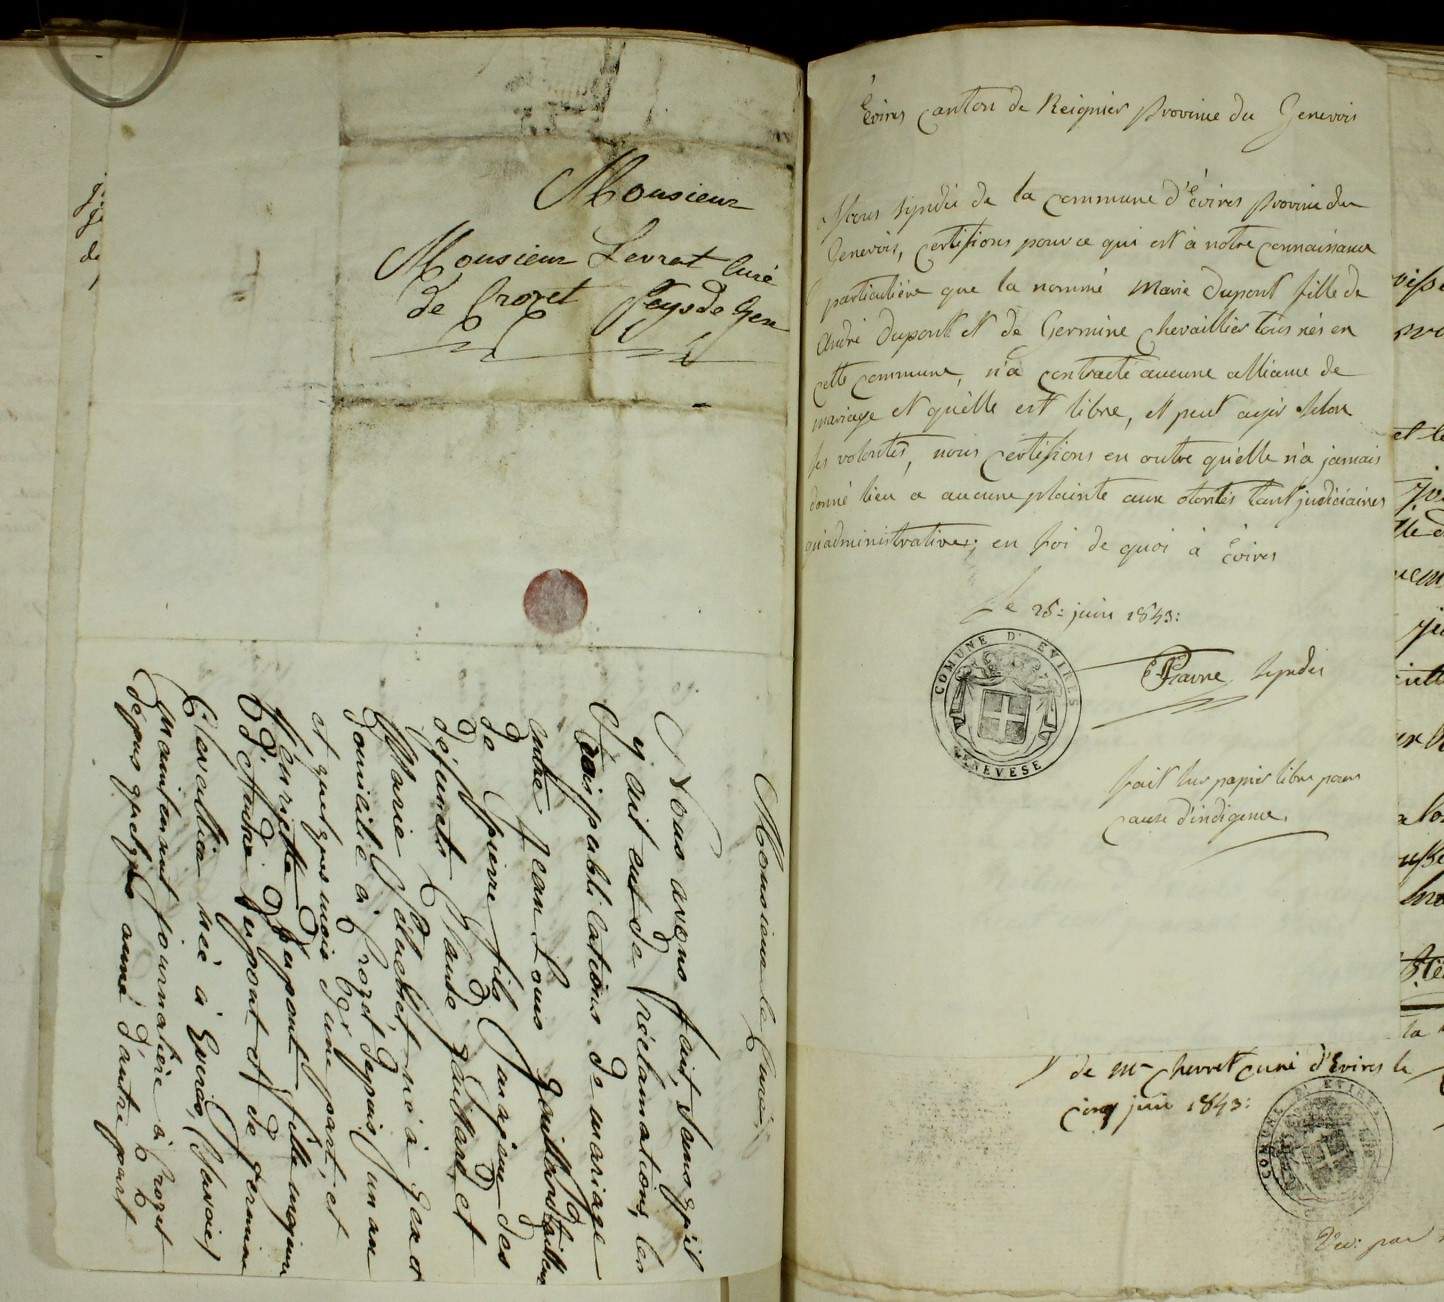 Monsieur
Monsieur Levrat Curé
de Crozet Pays de Gex
Monsieur le Curé,
Nous avons fait, sans qu'il
y ait eut de réclamations, les
trois publications de mariage
entre Jean Louis Gaillard tailleur
de Pierre fils majeur des
défunts Claude Gaillard et
Marie né à Gex et
domicilié à Crozet depuis un an
et quelques mois d'une part, et
Dupont fille majeure
d'André Dupont et de Germine
Chevallier née à Evires, (Savoie)
maintenant journalière à Crozet
depuis quelque année d'autre part
Évires canton de Reignier Province du Genevois
Nous syndic de la commune d'Évires Province du
Genevois, certifions pour ce qui est à notre connaissance
particulière que la nommé Marie Dupont fille de
André Dupont et de Germine Chevaillier tous nés en
cette commune, n'a contracté aucune alliance de
mariage et qu'elle est libre, et peut agir selon
ses volontés, nous certifions en outre qu'elle n'a jamais
donné lieu a aucune plainte aux otorités tant judiciaires
qu'administratives; en foi de quoi à Évires
le 25: juin 1843:
COMUNE D'EVIRES
GENEVESE
Favre syndic
fait sur papier libre pour
cause d'indigence.
de Mr Chevret curé d'Évires le
cinq juin 1843:
COMUNE D'EVIRES
Vu: par